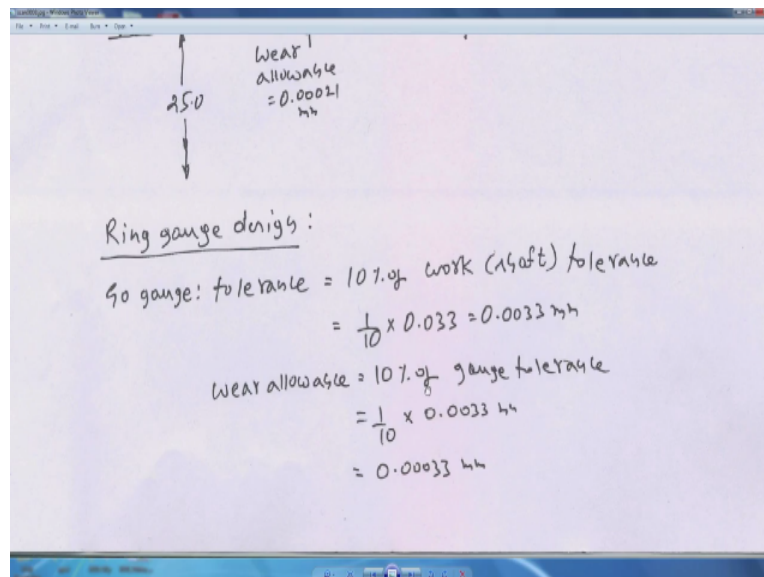 scan0006.jpg - Windows Photo Viewer
File Print E-mail Burn Open
wear
allowance
= 0.00021
mm
25.0
Ring gauge design:
Go gauge: tolerance = 10% of work (shaft) tolerance
= 1/10 × 0.033 = 0.0033 mm
wear allowance = 10% of gauge tolerance
= 1/10 × 0.0033 mm
= 0.00033 mm